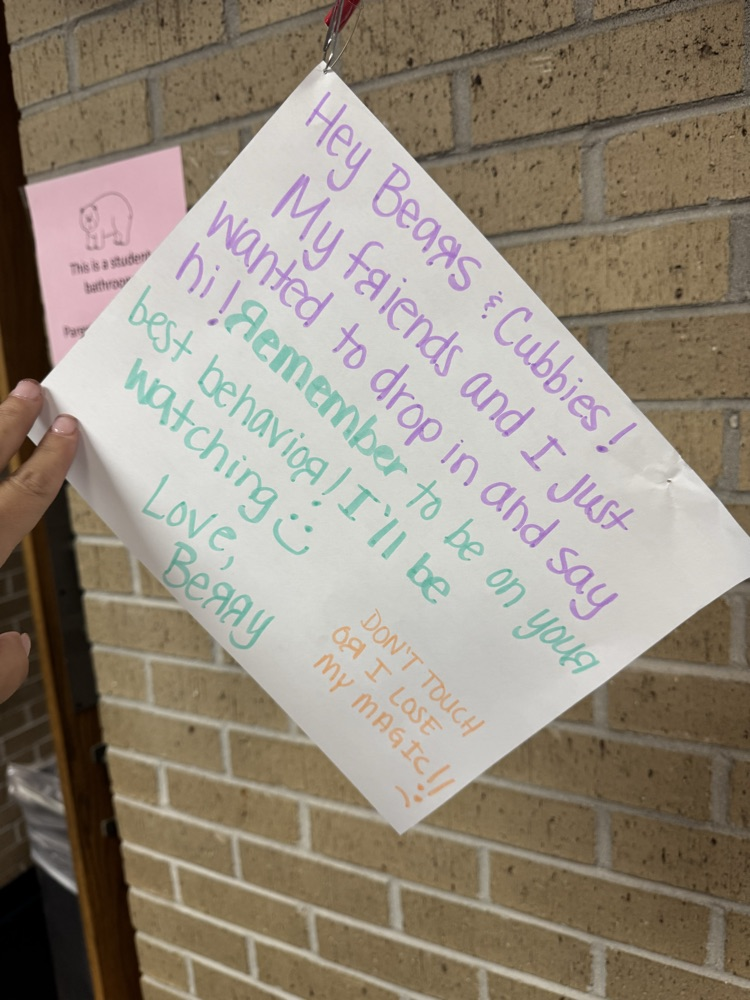 Hey Bears & Cubbies!
My friends and I just
wanted to drop in and say
hi! Remember to be on your
best behavior! I'll be
watching :)
Love,
Berry
DON'T TOUCH
OR I LOSE
MY MAGIC!!
:(
This is a student